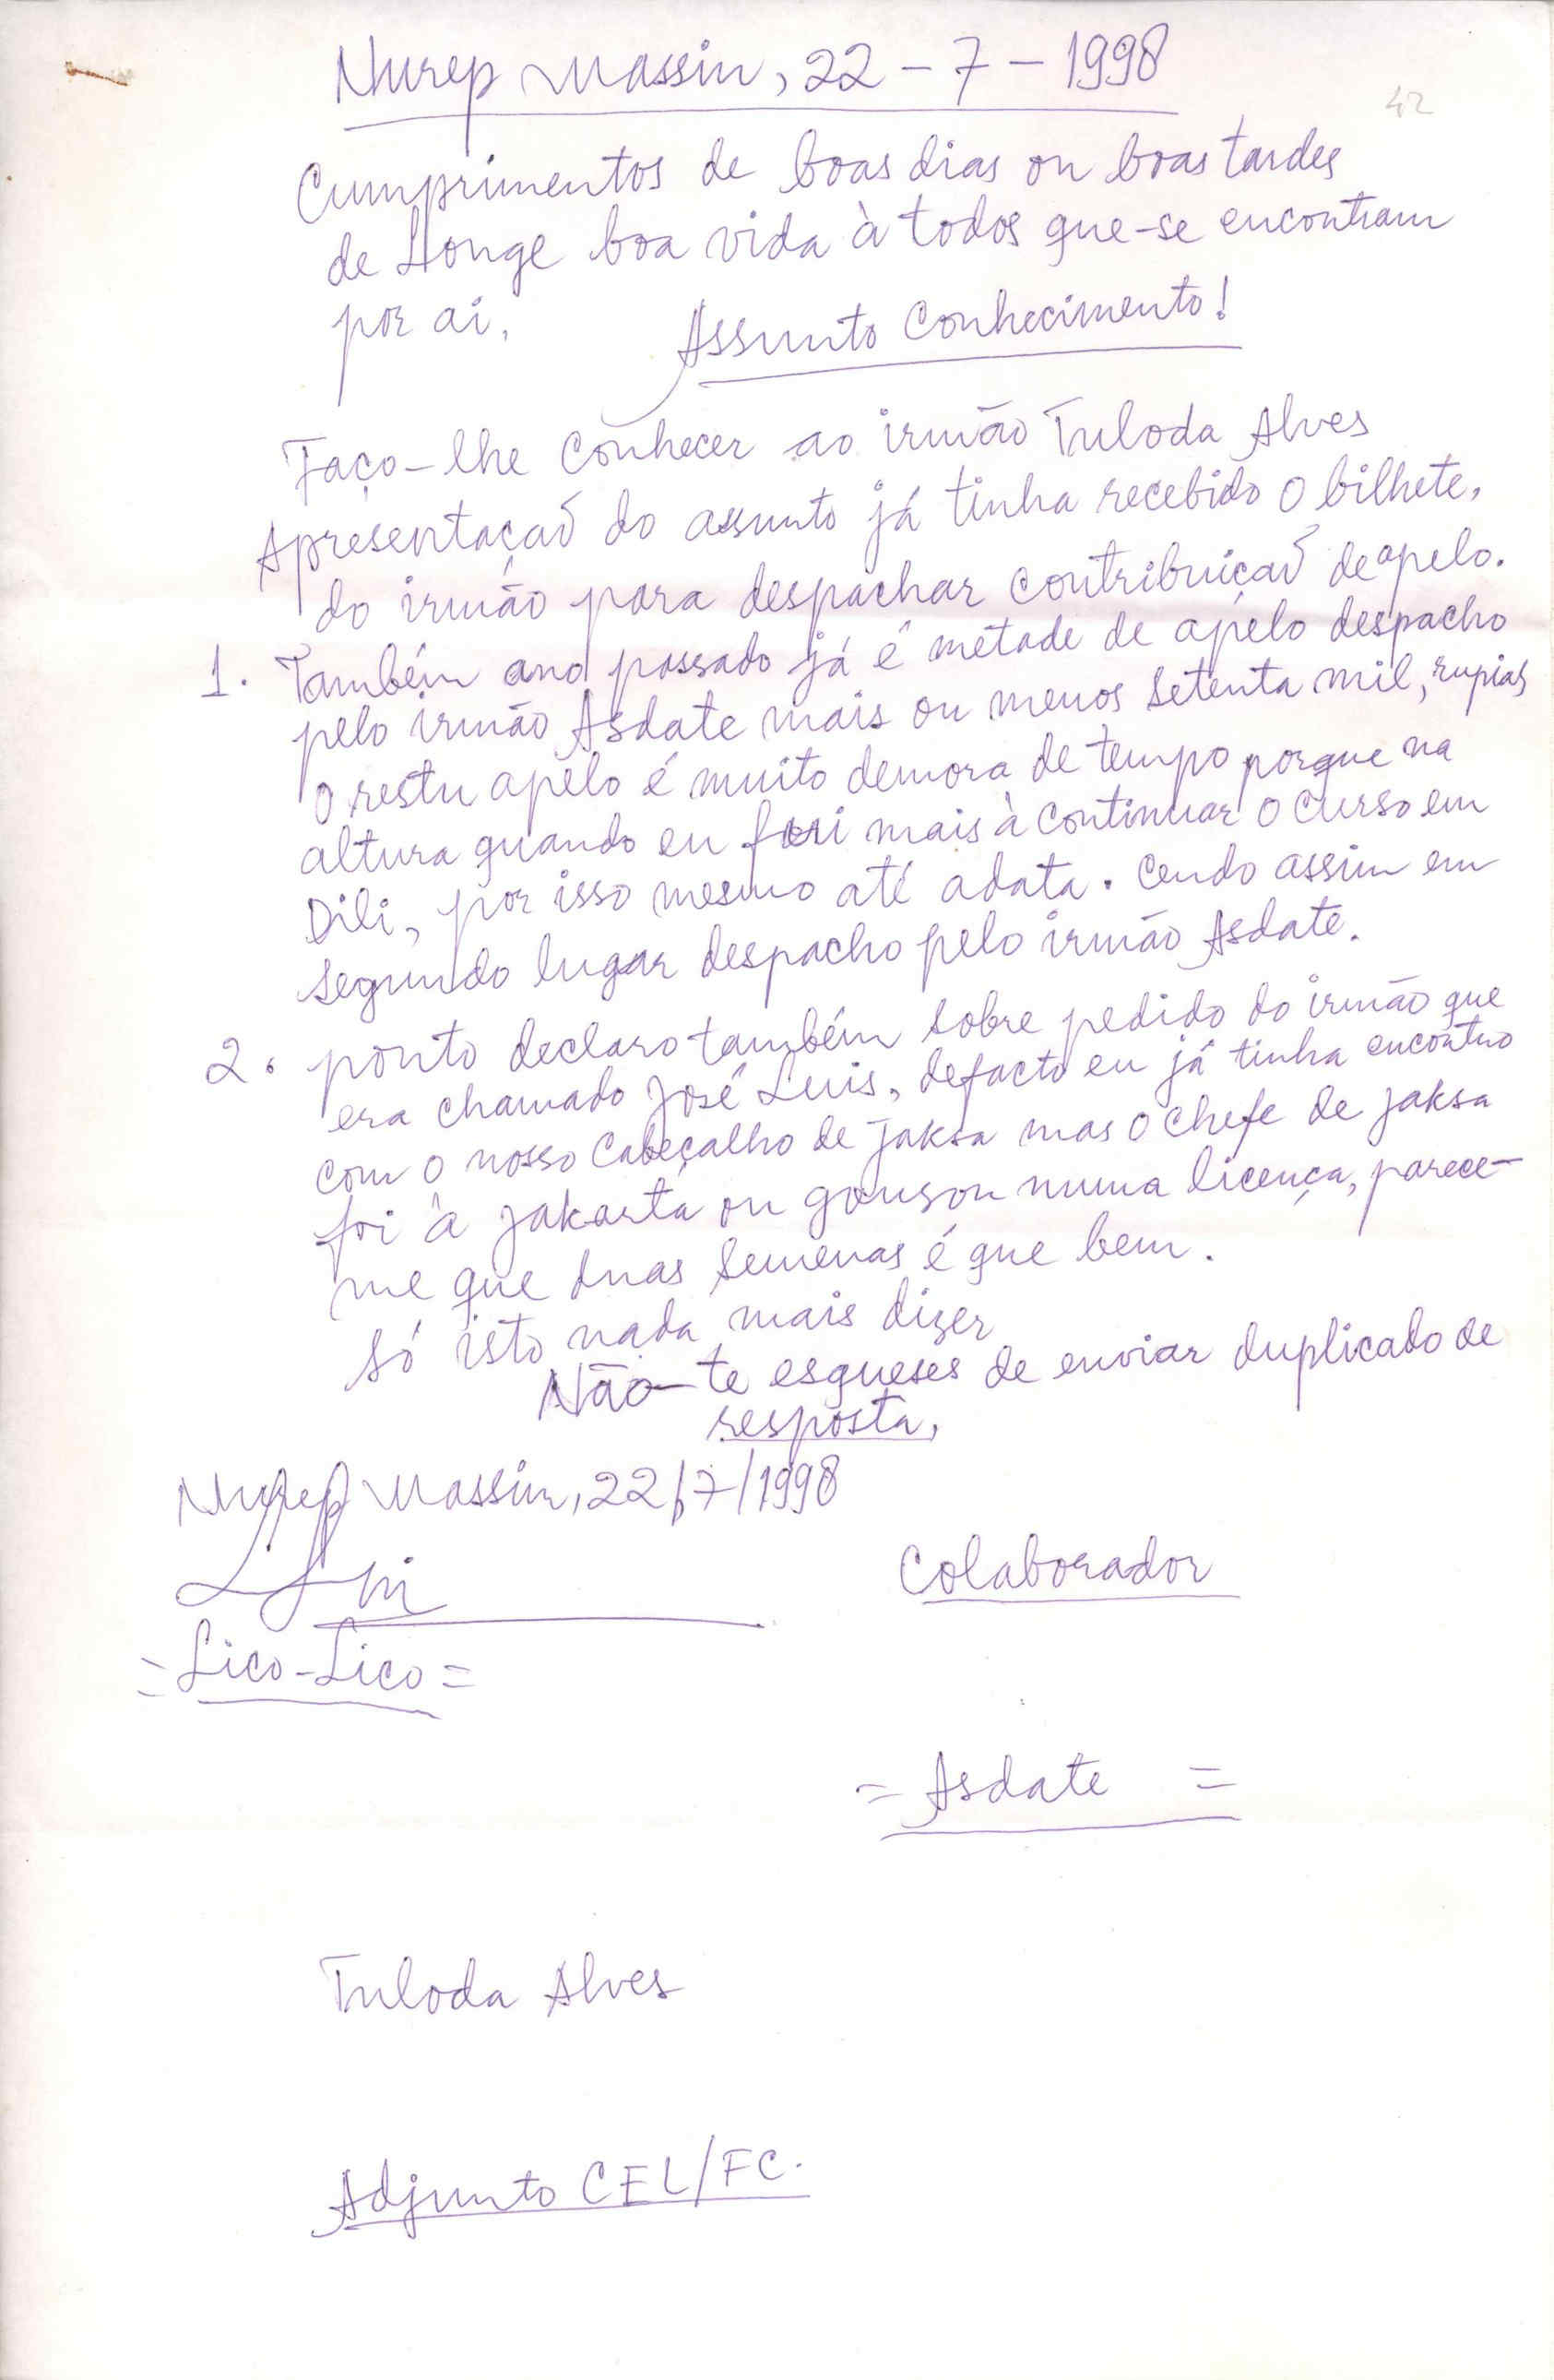 Nurep Massin, 22 – 7 – 1998
42
Cumprimentos de boas dias ou boas tardes
de Longe boa vida à todos que-se encontram
por ai,
Assunto Conhecimento!
Faço-lhe conhecer ao irmão Tuloda Alves
Apresentaçaõ do assunto já tinha recebido o bilhete,
do irmão para despachar contribuiçaõ de apelo.
1. Também ano passado já é metade de apélo despacho
pelo irmão Asdate mais ou menos setenta mil, rupias
o restu apélo é muito demora de tempo porque na
altura quando eu fui mais à continuar o curso em
Dili, por isso mesmo até adata. Cendo assim em
segundo lugar despacho pelo irmão Asdate.
2. ponto declaro também sobre pedido do irmão que
era chamado José Luis, defacto eu já tinha encontro
com o nosso Cabeçalho de jaksa mas o chefe de jaksa
foi à jakarta ou numa licença, parece-
me que duas semenas é que bem.
só isto nada mais dizer
Não-te esqueses de enviar duplicado de
resposta,
Nurep Massin, 22/7/1998
Colaborador
=Lico-Lico=
= Asdate =
Tuloda Alves
Adjunto CEL/FC.